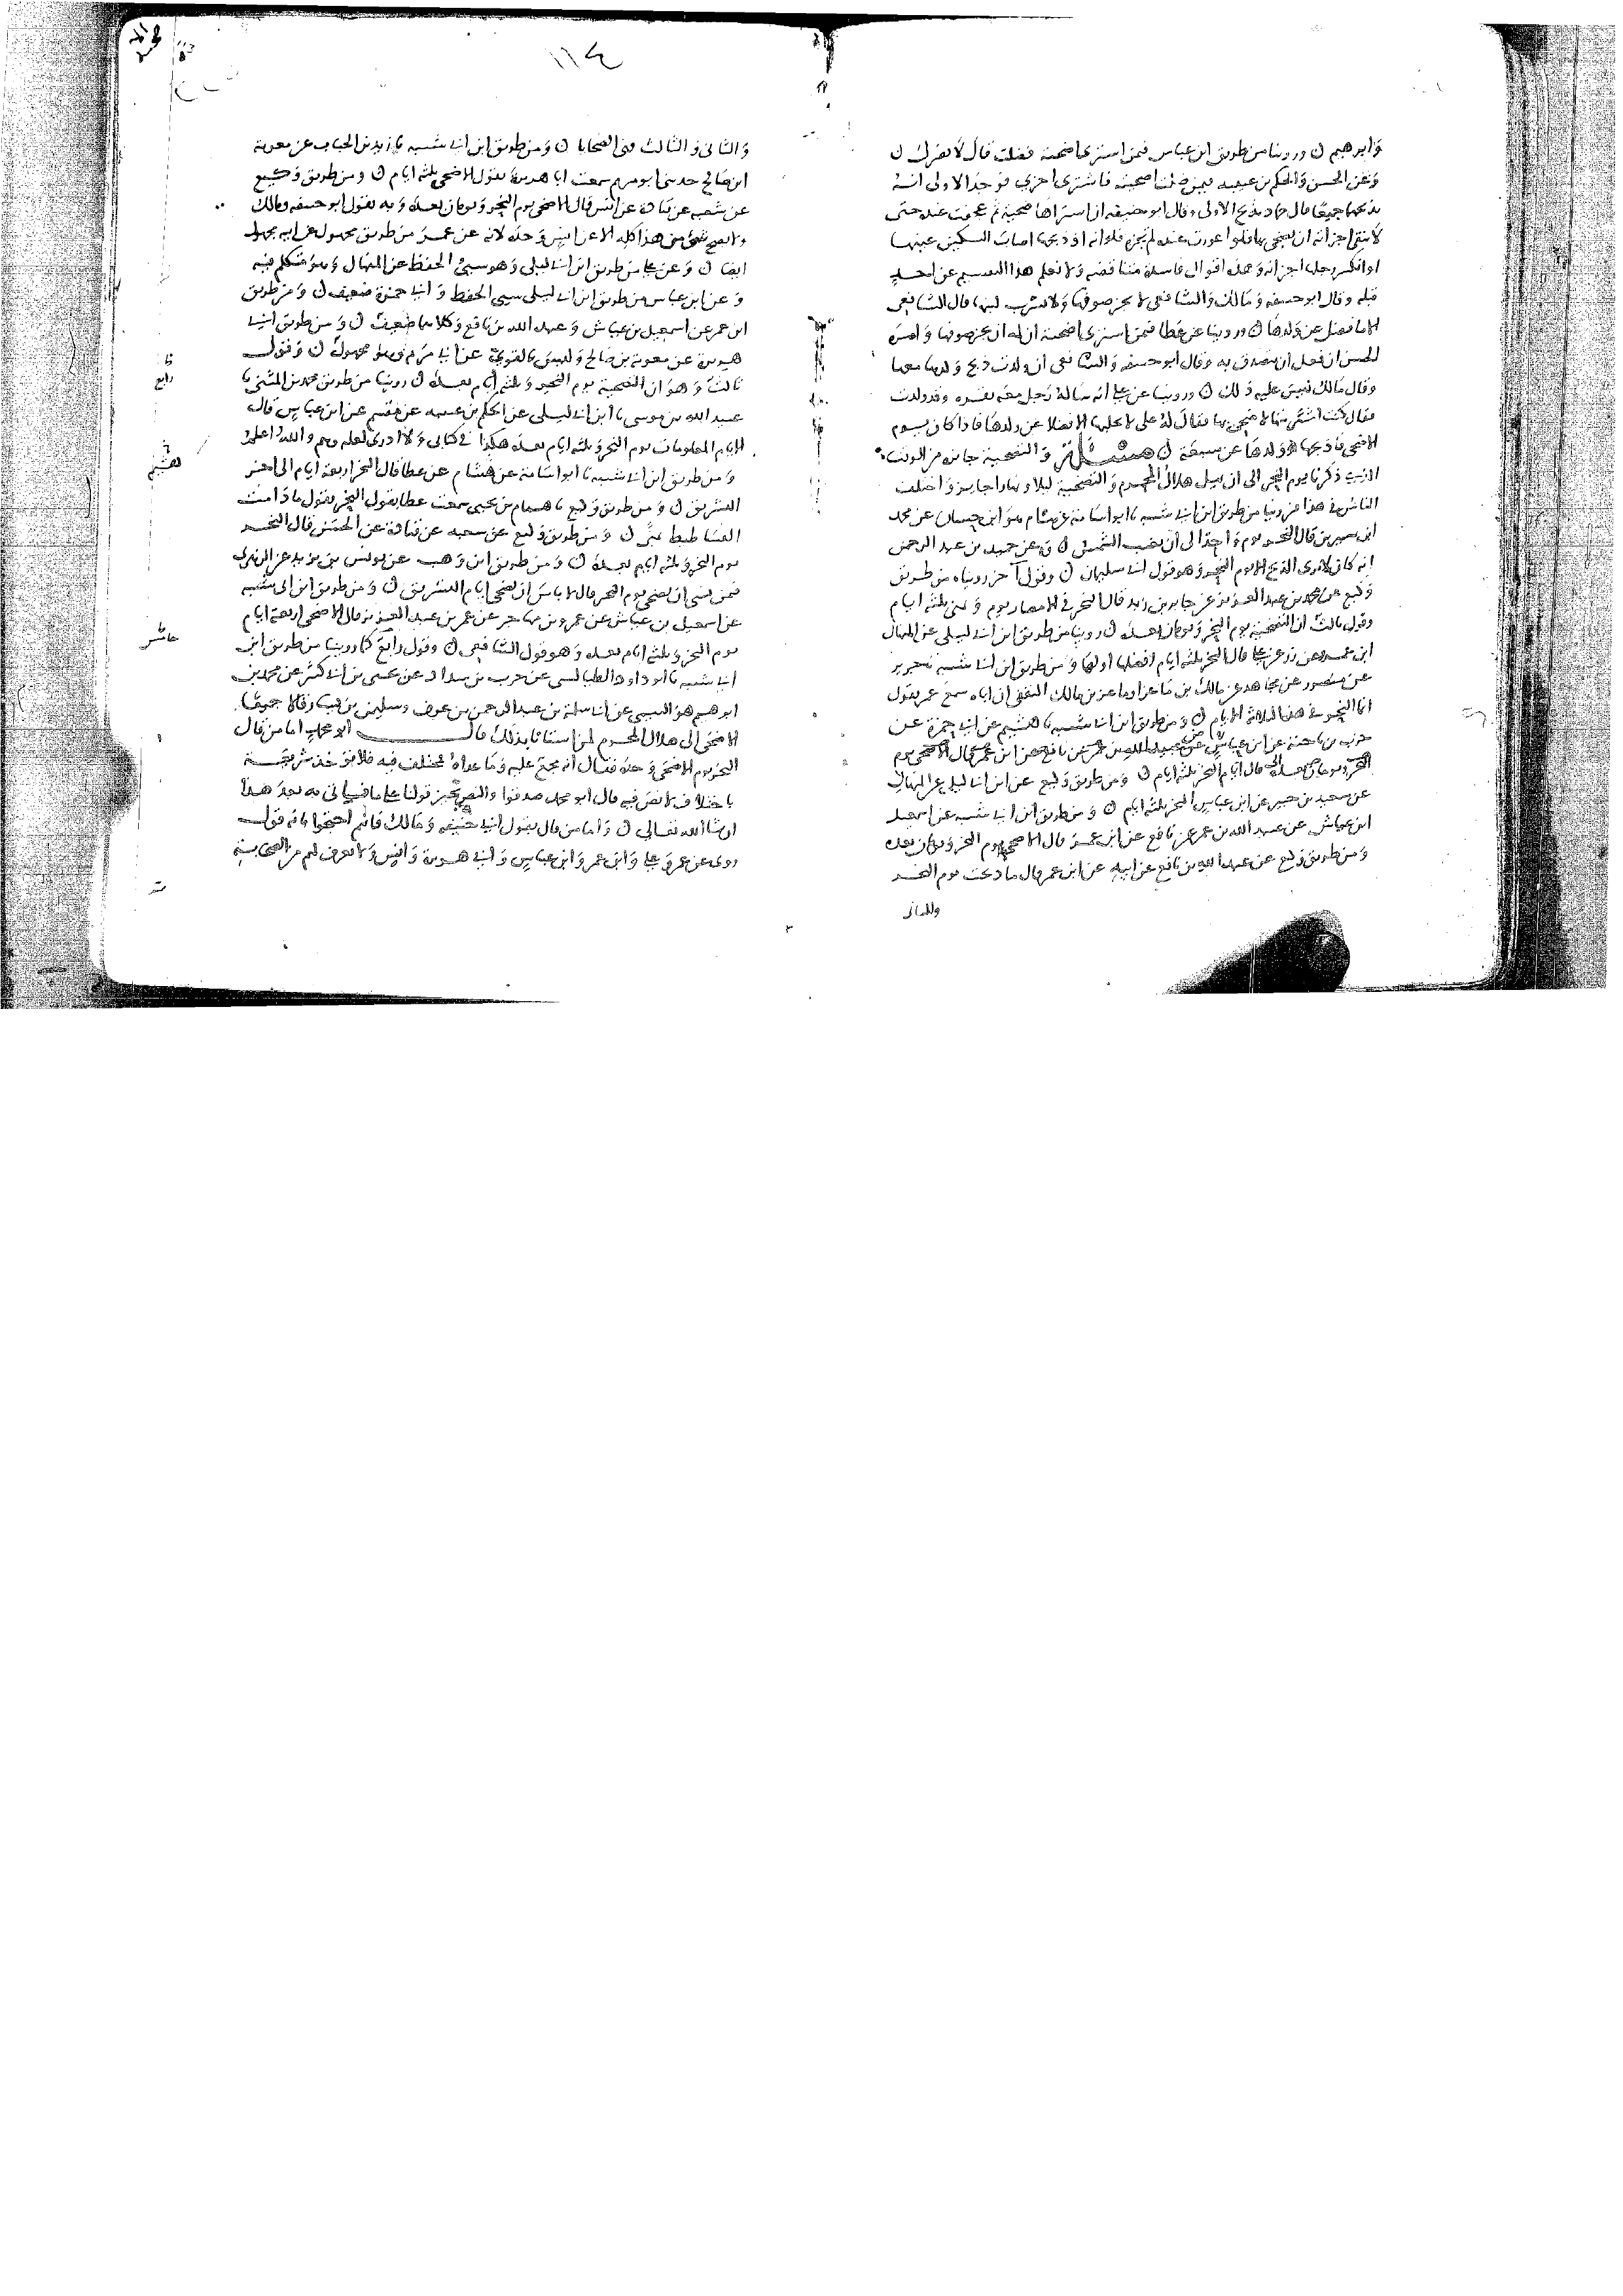 وابرهيم ن وروينا من طريق ابن عباس فيمن اشترى اضحية فضلت قال لا يضرك ن
وعن الحسن والحكم بن عتيبه فيمن ضلت اضحيته فاشترى اخرى فوجد الاولى انه
يذبحهما جميعا قال حماد يذبح الاولى وقال ابو حنيفه ان اشتراها صحيحة ثم عجفت عنده حتى
لا تنقى اجزاته ان يضحي بها فلو اعورت عنده لم تجزه فلو انه اذ ذبحها اصاب السكين عينها
او انكسر رجلها اجزاته وهذه اقوال فاسدة متناقضه ولا نعلم هذا التقسيم عن احد
قبله وقال ابو حنيفه ومالك والشافعي لا يجز صوفها ولا يشرب لبنها قال الشافعي
الا ما فضل عن ولدها ن وروينا عن عطا فيمن اشترى اضحية ان له ان يجز صوفها وامره
الحسن ان فعل ان يتصدق به وقال ابو حنيفه والشافعي ان ولدت ذبح ولدها معها
وقال مالك ليس عليه ذلك ن وروينا عن علي انه ساله رجل معه بقره وقد ولدت
فقال كنت اشتريتها لاضحي بها فقال له علي لا تحلبها الا فضلا عن ولدها فاذا كان يوم
الاضحى فاذبحها وولدها عن سبعة ن مسئلة والتضحية جائزة من الوقت
الذي ذكرنا يوم النحر الى ان يهل هلال المحرم والتضحية ليلا ونهارا جايز واختلف
الناس في هذا فروينا من طريق ابن ابي شيبه نا ابو اسامة عن هشام هو ابن حسان عن محمد
ابن سيرين قال النحر يوم واحد الى ان تغيب الشمس ن وعن حميد بن عبد الرحمن
انه كان لا يرى الذبح الا يوم النحر وهو قول ابي سليمان ن وقول آخر رويناه من طريق
وكيع عن محمد بن عبد العزيز عن جابر بن زيد قال النحر في الامصار يوم وبمنى ثلثة ايام
وقول ثالث ان التضحية يوم النحر ويومان بعده ن روينا من طريق ابن ابي ليلى عن المنهال
ابن عمرو عن زر عن علي قال النحر ثلثة ايام افضلها اولها ومن طريق ابن ابي شيبه نا جرير
عن منصور عن مجاهد عن مالك بن ماعز او ماعز بن مالك الثقفي ان اباه سمع عمر يقول
انما النحر في هذه الثلاثة الايام ن ومن طريق ابن ابي شيبه نا هشيم عن ابي حمزة عن
حرب بن ناجية عن ابن عباس
النحر ويومان بعده قال ايام النحر ثلثة ايام ن ومن طريق وكيع عن ابن ابي ليلى عن المنهال
عن سعيد بن جبير عن ابن عباس النحر ثلثة ايام ن ومن طريق ابن ابي شيبه عن اسمعيل
ابن عياش عن عبيد الله بن عمر عن نافع عن ابن عمر قال الاضحى يوم النحر ويومان بعده
ومن طريق وكيع عن عبد الله بن نافع عن ابيه عن ابن عمر قال ما ذبحت يوم النحر
والثاني
١١٤
والثاني والثالث فهي الضحايا ن ومن طريق ابن ابي شيبه نا زيد بن الحباب عن معوية
ابن صالح حدثني ابو مريم سمعت ابا هريرة يقول الاضحى ثلثة ايام ن ومن طريق وكيع
عن شعبه عن قتادة عن انس قال الاضحى يوم النحر ويومان بعده وبه يقول ابو حنيفه ومالك
ولا يصح شي من هذا كله الا عن انس وحده لانه عن عمر من طريق مجهول عن ابيه مجهول
ايضا ن وعن علي من طريق ابن ابي ليلى وهو سيئ الحفظ عن المنهال وهو متكلم فيه
وعن ابن عباس من طريق ابن ابي ليلى سيي الحفظ وابي حمزة ضعيف ن ومن طريق
ابن عمر عن اسمعيل بن عياش وعبد الله بن نافع وكلاهما ضعيف ن ومن طريق ابي
هريرة عن معوية بن صالح وليس بالقوي عن ابي مريم وهو مجهول ن وقول
ثالث وهو ان التضحية يوم النحر وثلثة ايام بعده ن روينا من طريق محمد بن المثنى نا
عبيد الله بن موسى نا ابن ابي ليلى عن الحكم بن عتيبه عن مقسم عن ابن عباس قال
الايام المعلومات يوم النحر وثلثة ايام بعده هكذا في كتابي ولا ادري لعله وهم والله اعلم
ومن طريق ابن ابي شيبه نا ابو اسامة عن هشام عن عطا قال النحر اربعة ايام الى اخر
التشريق ن ومن طريق وكيع نا همام بن يحيى سمعت عطا يقول النحر يقول ما دامت
الفساطيط بمنى ن ومن طريق وكيع عن شعبه عن قتادة عن الحسن قال النحر
يوم النحر وثلثة ايام بعده ن ومن طريق ابن وهب عن يونس بن يزيد عن الزهري
فيمن نسي ان يضحي يوم النحر قال لا باس ان يضحي ايام التشريق ن ومن طريق ابن ابي شيبه
عن اسمعيل بن عياش عن عمرو بن مهاجر عن عمر بن عبد العزيز قال الاضحى اربعة ايام
يوم النحر وثلثة ايام بعده وهو قول الشافعي ن وقول رابع كما روينا من طريق ابن
ابي شيبه نا ابو داود الطيالسي عن حرب بن شداد عن يحيى بن ابي كثير عن محمد بن
ابرهيم هو التيمي عن ابي سلمة بن عبد الرحمن بن عوف وسليمن بن يسار قالا جميعا
الاضحى الى هلال المحرم لمن استانا بذلك قال ابو محمد اما من قال
النحر يوم الاضحى وحده فقال انه مجتمع عليه وما عداه مختلف فيه فلا تؤخذ شريعة
باختلاف لا نص فيه قال ابو محمد صدقوا والنص يجيز قولنا على ما فياتي به بعد هذا
ان شا الله تعالى ن واما من قال بقول ابي حنيفه ومالك فانهم احتجوا بانه قول
روي عن عمر وعلي وابن عمر وابن عباس وابي هريرة وانس ولا يعرف لهم من الصحابة
رابع
هشيم
عاشر